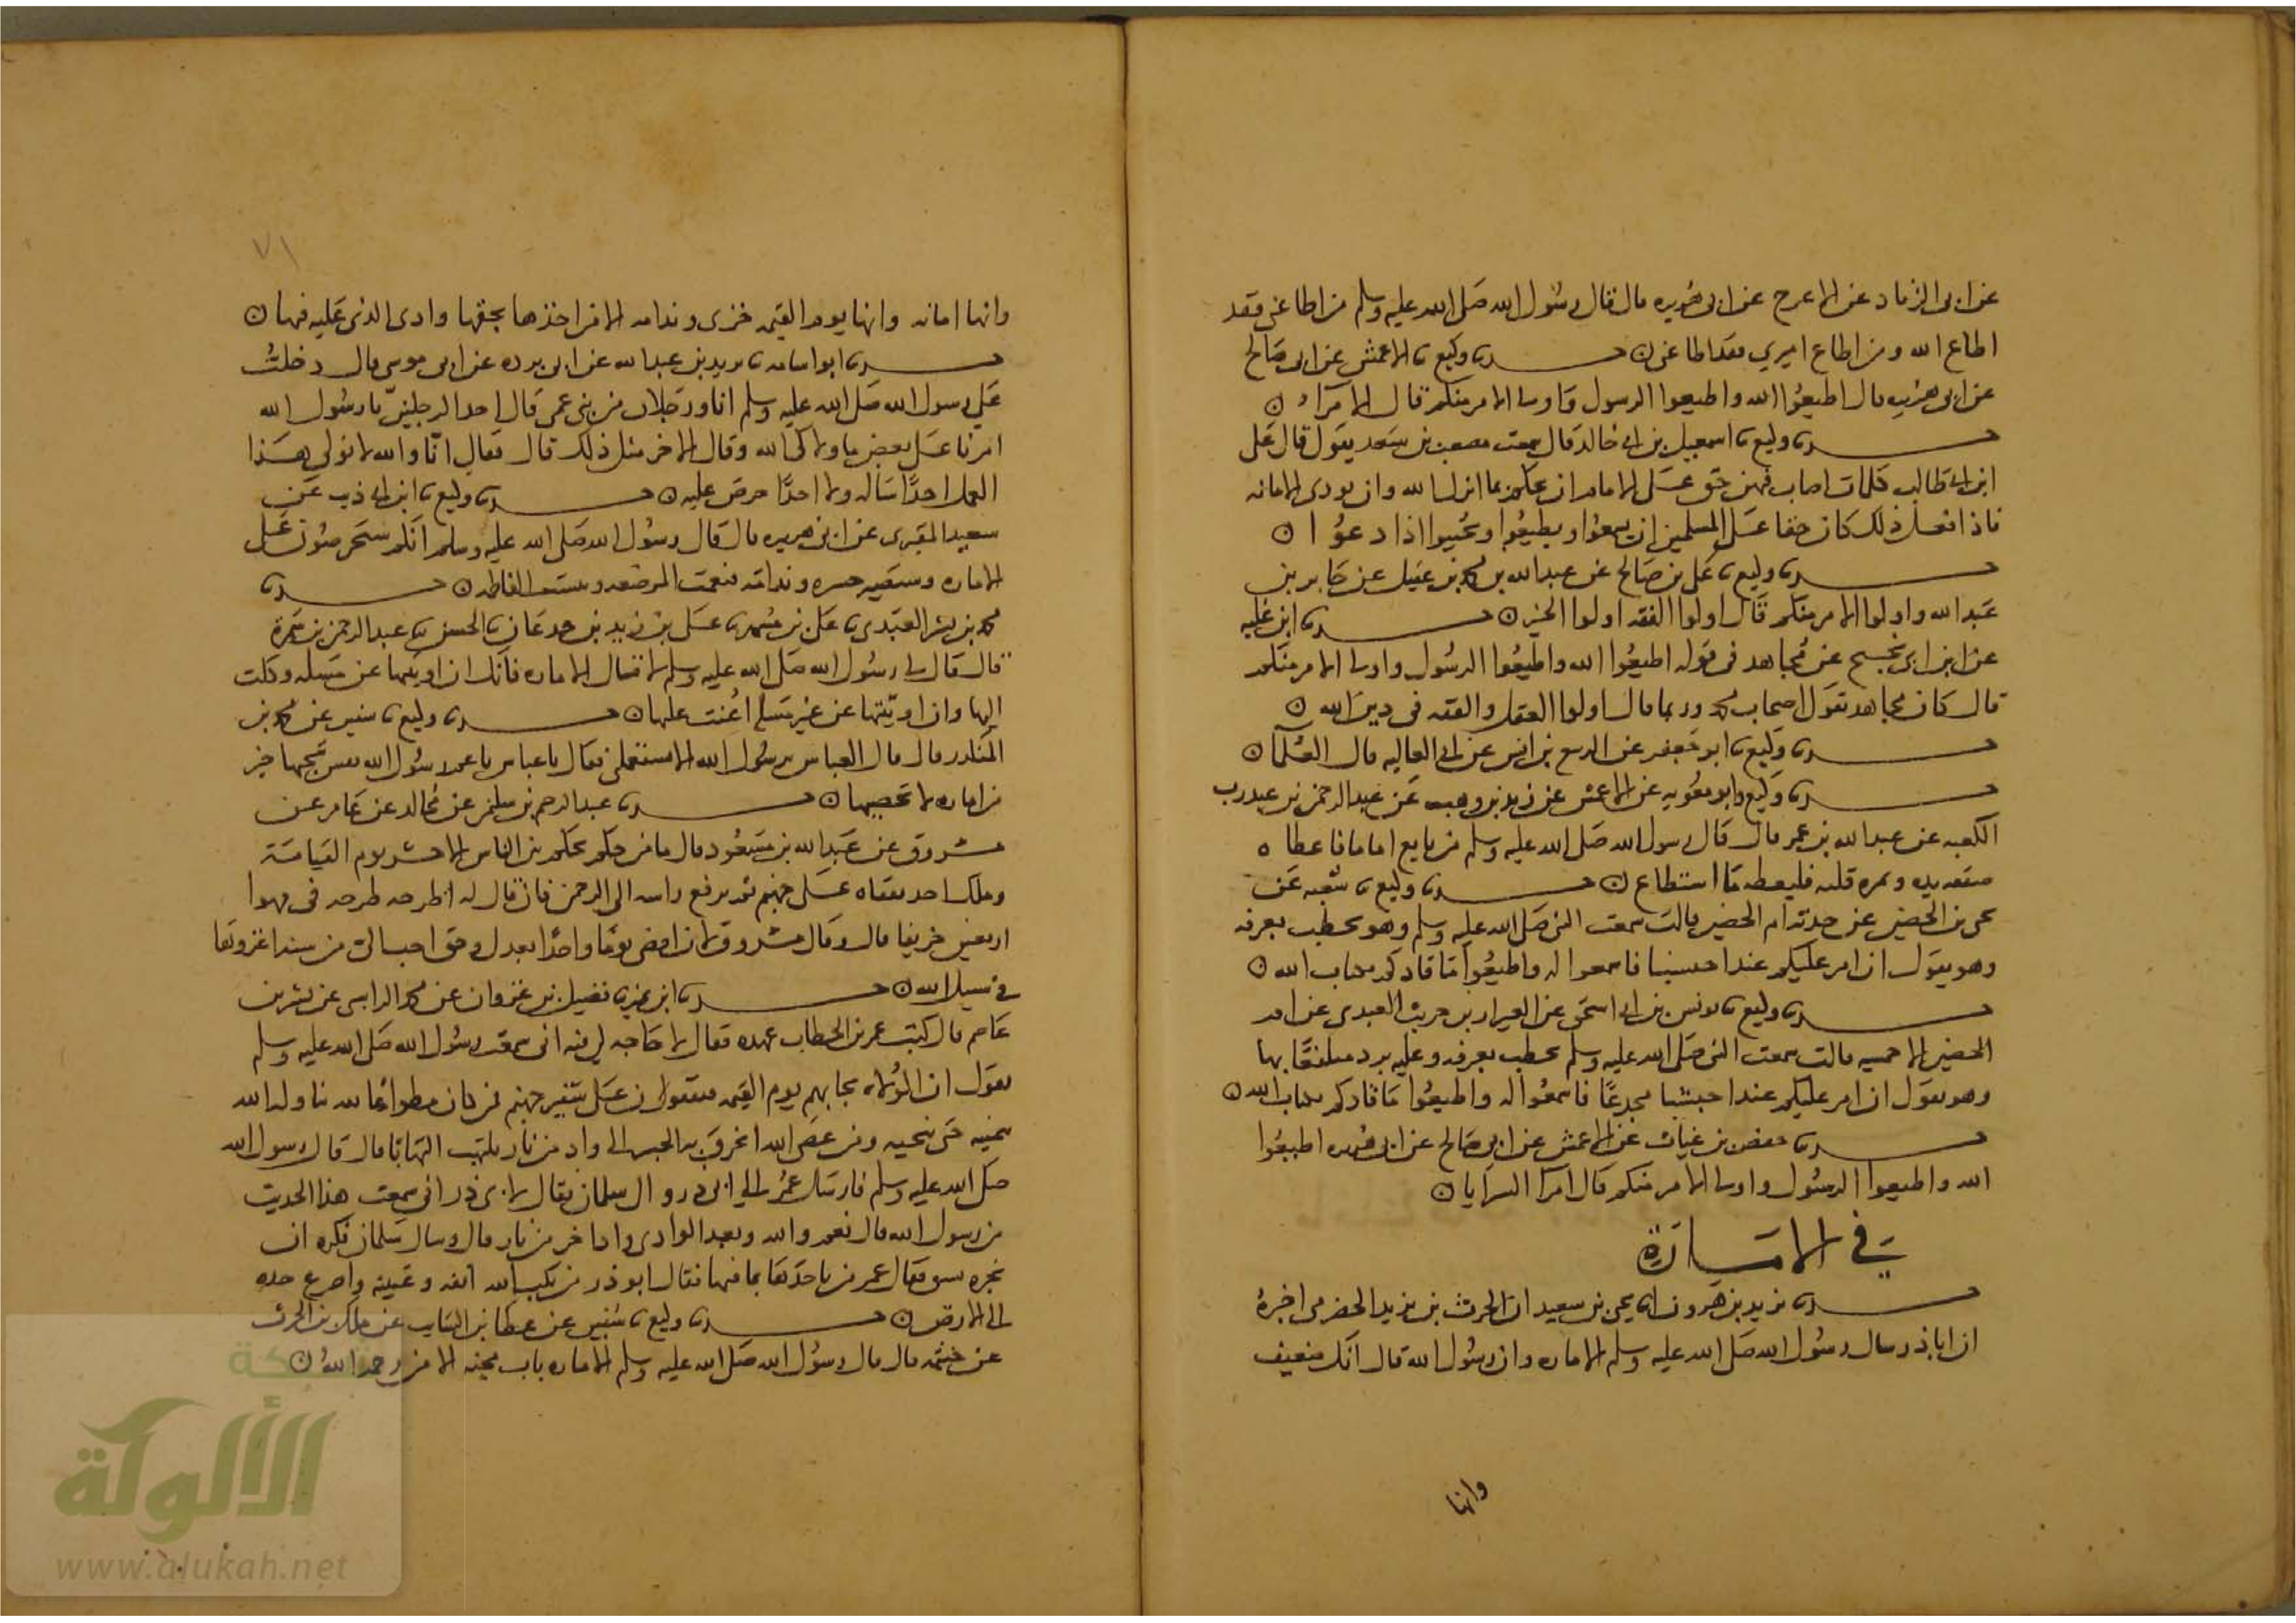 عن ابى الزناد عن الاعرج عن ابى هريره قال قال رسول الله صلى الله عليه وسلم من اطاعنى فقد
اطاع الله ومن اطاع اميري فقد اطاعنى ن حدثنا وكيع نا الاعمش عن ابى صالح
عن ابى هريره قال اطيعوا الله واطيعوا الرسول واولى الامر منكم قال الامراء ن
حدثنا وكيع نا اسمعيل بن ابى خالد قال سمعت مصعب بن سعد يقول قال على
ابن ابى طالب كلمات اصاب فيهن حق على الامام ان يحكم بما انزل الله وان يودى الامانه
فاذا فعل ذلك كان حقا على المسلمين ان يسمعوا ويطيعوا ويجيبوا اذا دعوا ن
حدثنا وكيع نا على بن صالح عن عبدالله بن محمد بن عقيل عن جابر بن
عبدالله واولوا الامر منكم قال اولوا الفقه اولوا الخير ن حدثنا ابن عليه
عن ابن ابى نجيح عن مجاهد فى قوله اطيعوا الله واطيعوا الرسول واولى الامر منكم
قال كان مجاهد يقول اصحاب محمد وربما قال اولوا العقل والفقه فى دين الله ن
حدثنا وكيع نا ابو جعفر عن الربيع بن انس عن ابى العاليه قال العلما ن
حدثنا وكيع وابو معويه عن الاعمش عن زيد بن وهب عن عبدالرحمن بن عبد رب
الكعبه عن عبدالله بن عمر قال قال رسول الله صلى الله عليه وسلم من بايع اماما فاعطاه
صفقه يده وثمره قلبه فليطعه ما استطاع ن حدثنا وكيع نا شعبه عن
يحى بن الحضين عن جدته ام الحضين قالت سمعت النبى صلى الله عليه وسلم وهو يخطب بعرفه
وهو يقول ان امر عليكم عبدا حبشيا فاسمعوا له واطيعوا ما قادكم بكتاب الله ن
حدثنا وكيع نا يونس بن ابى اسحق عن العيزار بن حريث العبدى عن ام
الحضين الاحمسيه قالت سمعت النبى صلى الله عليه وسلم يخطب بعرفه وعليه برد متلفعا بها
وهو يقول ان امر عليكم عبدا حبشيا مجدعا فاسمعوا له واطيعوا ما قادكم بكتاب الله ن
حدثنا حفص بن غياث عن الاعمش عن ابى صالح عن ابى هريره اطيعوا
الله واطيعوا الرسول واولى الامر منكم قال امرا السرايا ن
في الامارة
حدثنا يزيد بن هرون انا يحى بن سعيد ان الحرث بن يزيد الحضرمى اخبره
ان اباذر سال رسول الله صلى الله عليه وسلم الاماره وان رسول الله قال انك ضعيف
وانها
٧١
وانها امانه وانها يوم القيمه خزى وندامه الا من اخذها بحقها وادى الذى عليه فيها ن
حدثنا ابواسامه نا بريد بن عبدالله عن ابى برده عن ابى موسى قال دخلت
على رسول الله صلى الله عليه وسلم انا ورجلان من بنى عمى قال احد الرجلين يا رسول الله
امرنا على بعض ما ولاك الله وقال الاخر مثل ذلك قال فقال انا والله لا نولى هذا
العمل احدا ساله ولا احدا حرص عليه ن حدثنا وكيع نا ابن ابى ذيب عن
سعيد المقبرى عن ابى هريره قال قال رسول الله صلى الله عليه وسلم انكم ستحرصون على
الاماره وستصير حسره وندامه فنعمت المرضعه وبيست الفاطمه ن حدثنا
محمد بن بشر العبدى نا على بن مسهر نا على بن زيد بن جدعان نا الحسن نا عبدالرحمن بن سمرة
قال قال لى رسول الله صلى الله عليه وسلم لا تسال الاماره فانك ان اوتيتها عن مسله وكلت
اليها وان اوتيتها عن غير مسله اعنت عليها ن حدثنا وكيع نا سفين عن محمد بن
المنكدر قال قال العباس يرسول الله الا تستعملنى فقال يا عباس يا عم رسول الله نفس تنجيها خير
من اماره لا تحصيها ن حدثنا عبدالرحيم بن سليمن عن مجالد عن عامر عن
مسروق عن عبدالله بن مسعود قال ما من حكم يحكم بين الناس الا حشر يوم القيامة
وملك اخذ بقفاه على جهنم ثم يرفع راسه الى الرحمن فان قال له اطرحه طرحه فى مهوا
اربعين خريفا قال وقال مسروق لان اقضى يوما واحدا بعدل وحق احب الى من سنه اغزوها
فى سبيل الله ن حدثنا ابن نمير نا فضيل بن غزوان عن محمد الراسبى عن بشر بن
عاصم قال كتب عمر بن الخطاب عهده فقال لا حاجه لى فيه انى سمعت رسول الله صلى الله عليه وسلم
يقول ان الولاه يجابهم يوم القيمه فيقفون على شفير جهنم فمن كان مطواعا لله تناوله الله
بيمينه حتى ينجيه ومن عصى الله انخرق به الجسر الى واد من نار يلتهب التهابا قال قال رسول الله
صلى الله عليه وسلم فارسل عمر الى ابى ذر وال سلمان فقال لابى ذر انى سمعت هذا الحديث
من رسول الله قال نعم والله وبعد الوادى واد اخر من نار قال وسال سلمان فكره ان
يخبره بشى فقال عمر من ياخذها بما فيها فقال ابو ذر من سلت الله انفه وعينيه واضرع خده
الى الارض ن حدثنا وكيع نا سفين عن عطا بن السايب عن ملك بن الحرث
عن خيثمه قال قال رسول الله صلى الله عليه وسلم الاماره باب محنه الا من رحمه الله ن
شبكة
الألوكة
www.alukah.net